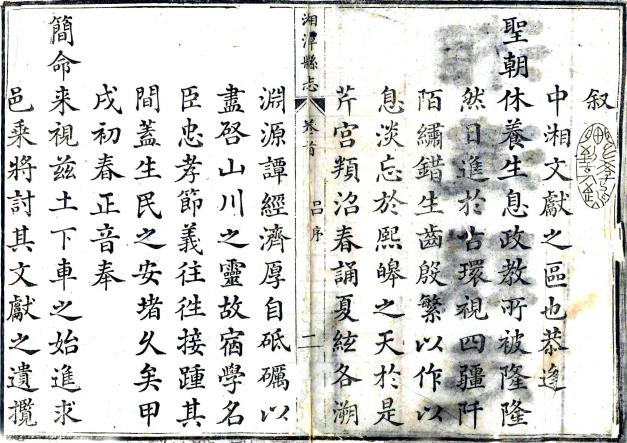 叙
中湘文獻之區也恭逢
聖朝休養生息政教所被隆隆
然日進於古環視四疆阡
陌繡錯生齒殷繁以作以
息淡忘於熙皞之天於是
芹宮類沿春誦夏絃各溯
湘潭縣志
卷首
呂序
二
淵源譚經濟厚自砥礪以
盡啓山川之靈故宿學名
臣忠孝節義往徃接踵其
間蓋生民之安堵久矣甲
戌初春正音奉
簡命来視兹土下車之始進求
邑乘將討其文獻之遺攬